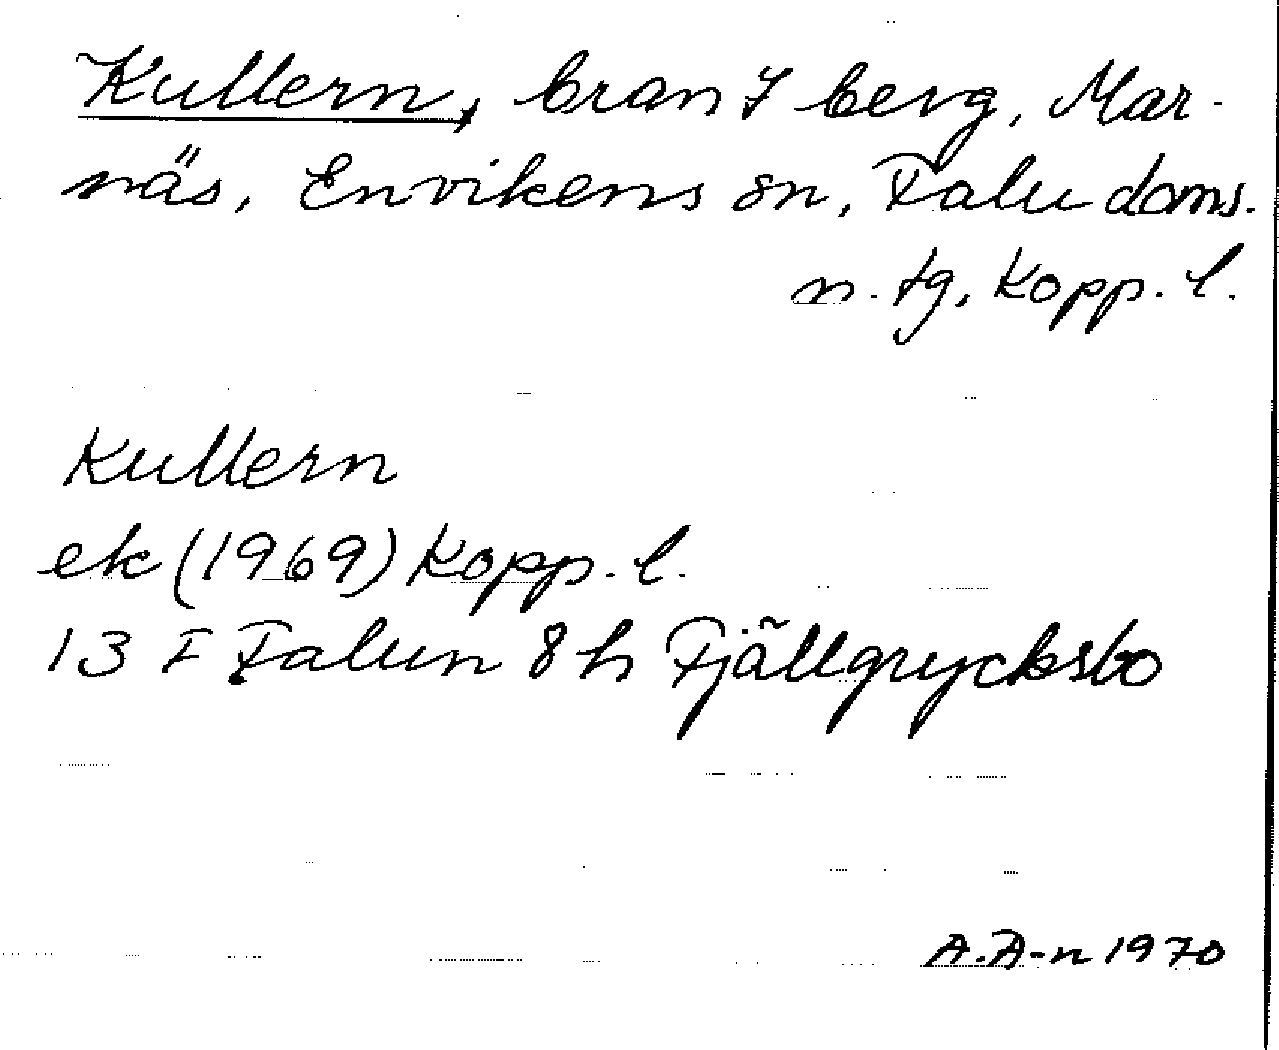 Kullern, brant berg, Mar-
näs, Envikens sn, Falu doms.
n. tg, Kopp. l.
Kullern
ek (1969) Kopp. l.
13 F Falun 8 h Fjällgrycksbo
A.A-n 1970